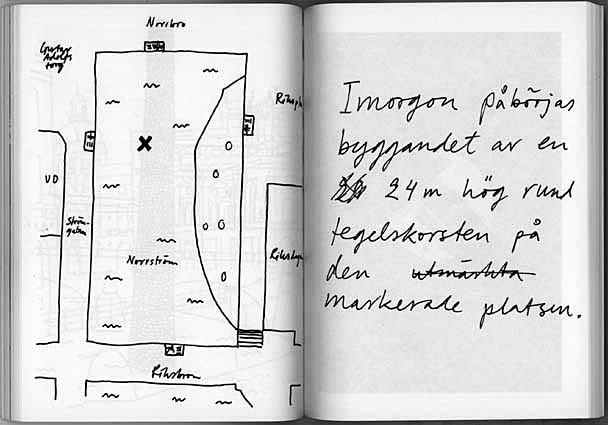 Norrbro
Gustav
Adolfs
torg
UD
Ström-
gatan
Norrström
Riksbron
Imorgon påbörjas
byggandet av en
24 m hög rund
tegelskorsten på
den utmärkta
markerade platsen.